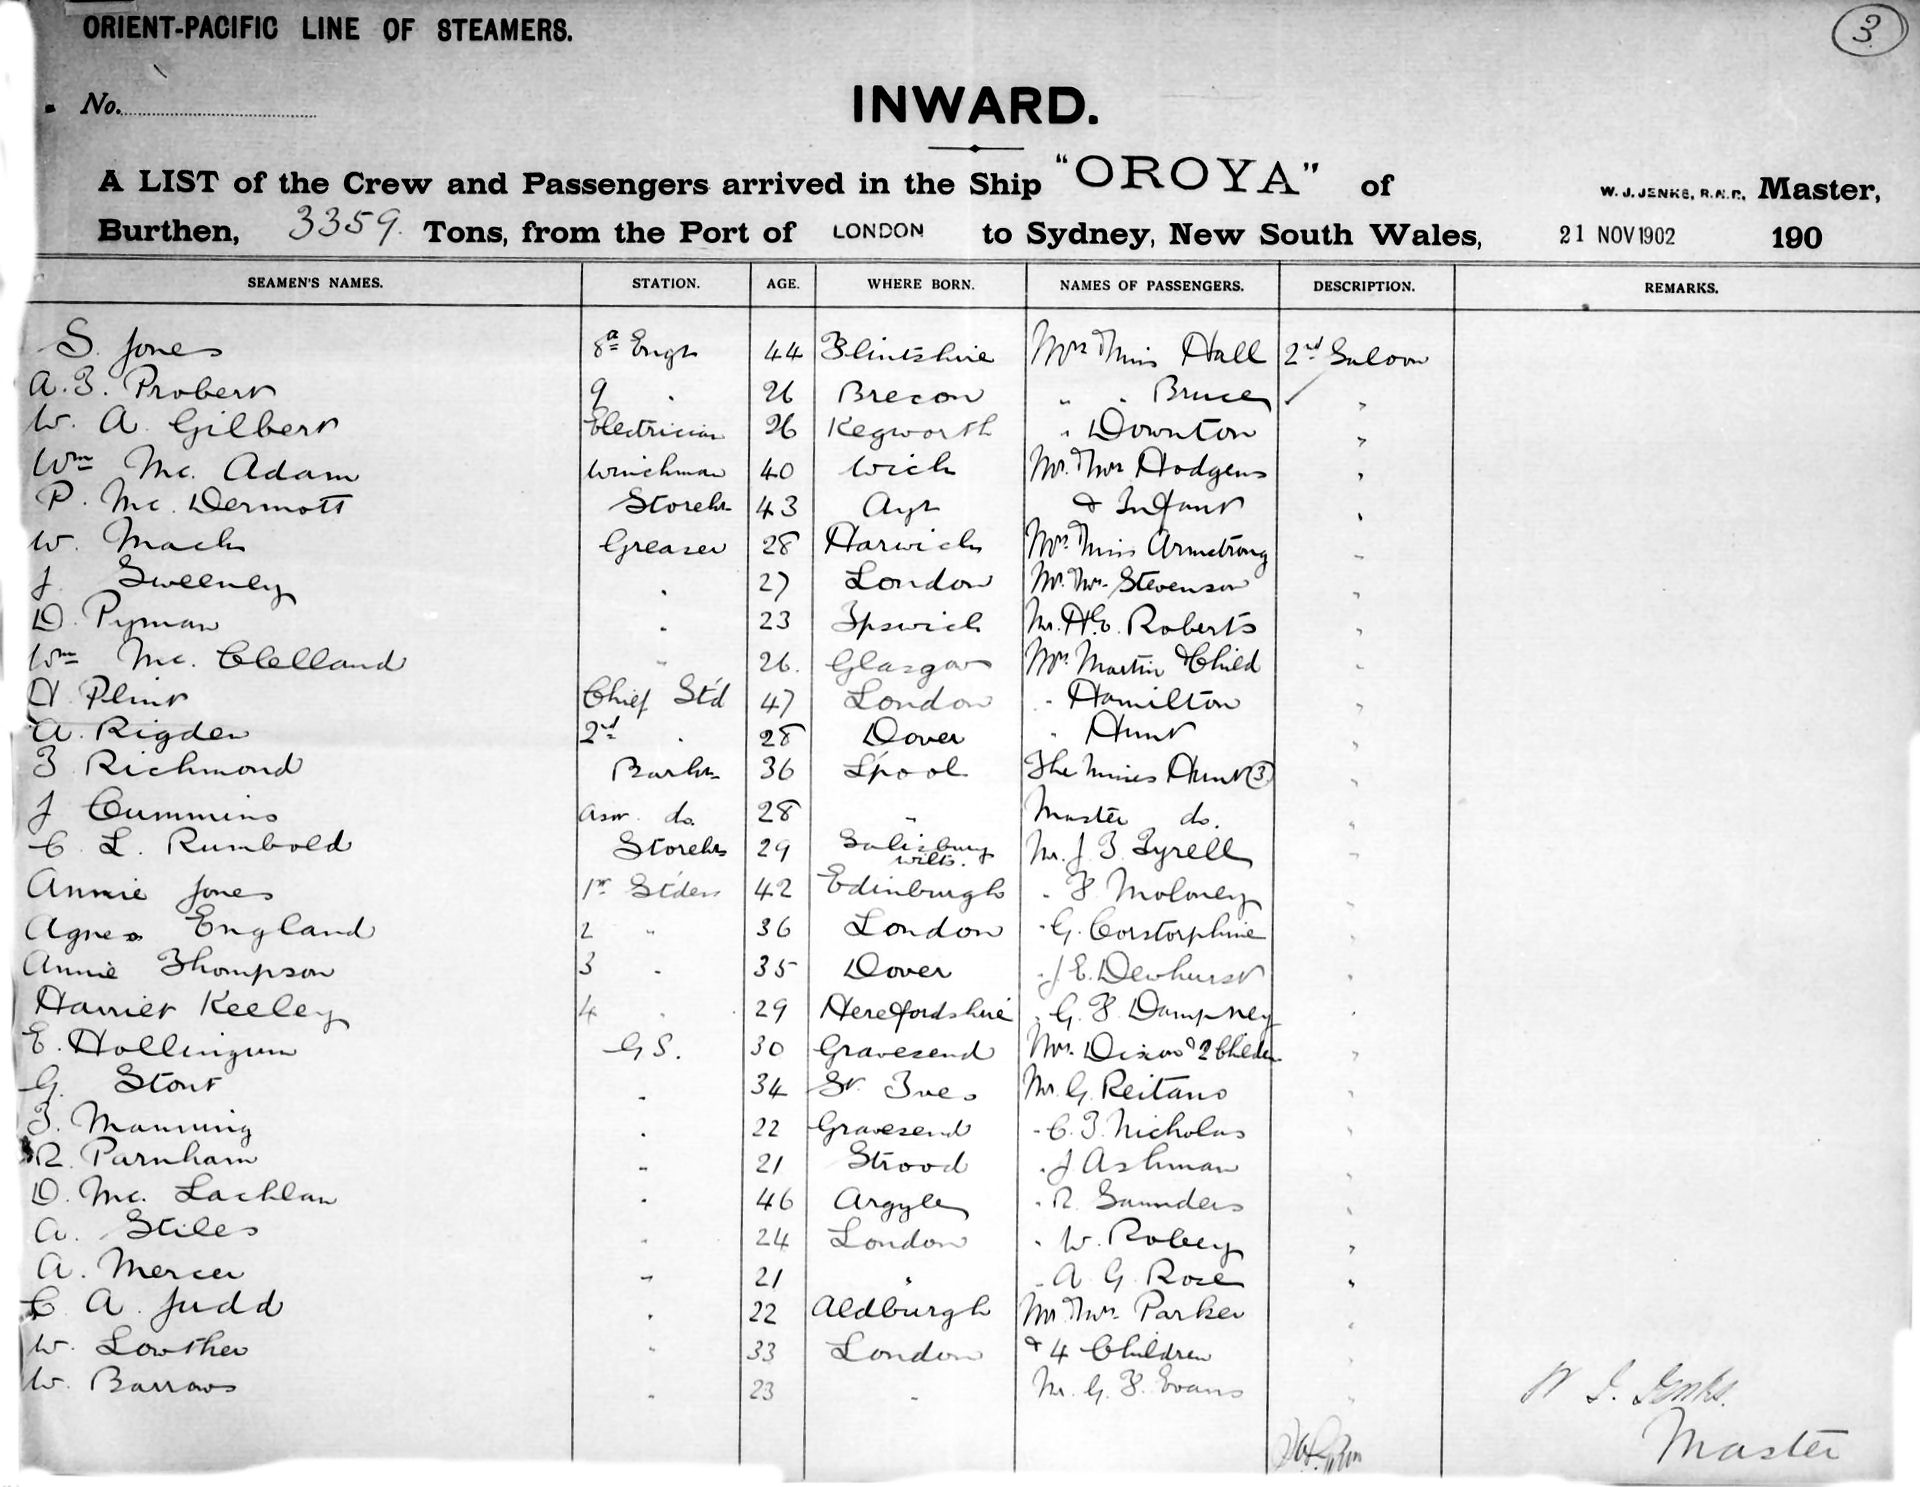 ORIENT-PACIFIC LINE OF STEAMERS.
3
No.
INWARD.
A LIST of the Crew and Passengers arrived in the Ship "OROYA" of W. J. JENKS, R.N.R., Master,
Burthen, 3359 Tons, from the Port of LONDON to Sydney, New South Wales, 21 NOV 1902 190
SEAMEN'S NAMES. STATION. AGE. WHERE BORN. NAMES OF PASSENGERS. DESCRIPTION. REMARKS.
S. Jones 8th Engr 44 Flintshire Mrs & Miss Hall 2nd Saloon
A. F. Probert 9 " 26 Brecon " " Bruce "
W. A. Gilbert Electrician 26 Kegworth " Downton "
Wm Mc. Adam Winchman 40 Wick Mr. & Mrs Hodgens "
P. Mc. Dermott Storekr 43 Ayr & Infant "
W. Mack Greaser 28 Harwich Mrs & Miss Armstrong "
J. Sweeney " 27 London Mr. & Mrs. Stevenson "
D. Pyman " 23 Ipswich Mr. Roberts "
Wm Mc. Clelland " 26. Glasgow Mrs Martin & Child "
H Plint Chief Std 47 London " Hamilton "
A. Rigden 2nd " 28 Dover " Hunt "
F Richmond Barkr 36 L'pool The Misses Hunt (3) "
J Cummins Asst. do. 28 " Master do. "
C. L. Rumbold Storekr 29 Salisbury Wilts. Mr. J. F. Tyrell "
Annie Jones 1st St'dess 42 Edinburgh " F Moloney "
Agnes England 2 " 36 London " G. Corstorphine "
Annie Thompson 3 " 35 Dover " J. E. Dewhurst "
Harriet Keeley 4 " 29 Herefordshire " G. F. Dampney "
E. Hollingum G S. 30 Gravesend Mrs. Dixon & 2 Childn "
G. Stout " 34 St. Ives Mr G. Reitano "
F. Manning " 22 Gravesend " C. F. Nicholas "
R. Parnham " 21 Strood " J Ashman "
D. Mc. Lachlan " 46 Argyle " R. Saunders "
A. Stiles " 24 London " W. Robey "
A. Mercer " 21 " " A. G. Rose "
C A. Judd " 22 Aldburgh Mr & Mrs. Parker "
W. Lowther " 33 London & 4 Children "
W. Barrows " 23 " Mr. G. F. Evans "
W J. Jenks.
Master